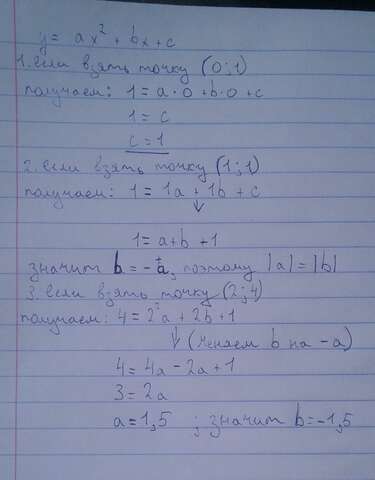 y = ax² + bx + c
1. если взять точку (0;1)
получаем: 1 = a·0 + b·0 + c
1 = c
c = 1
2. если взять точку (1;1)
получаем: 1 = 1a + 1b + c
↓
1 = a + b + 1
значит b = -a, поэтому |a| = |b|
3. если взять точку (2;4)
получаем: 4 = 2²a + 2b + 1
↓ (меняем b на -a)
4 = 4a - 2a + 1
3 = 2a
a = 1,5 ; значит b = -1,5